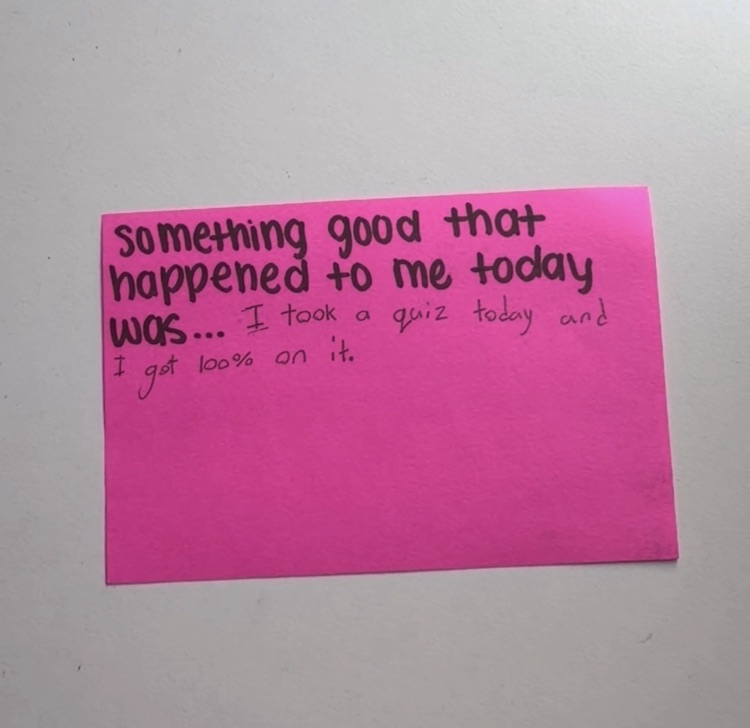 something good that
happened to me today
was... I took a quiz today and
I got 100% on it.